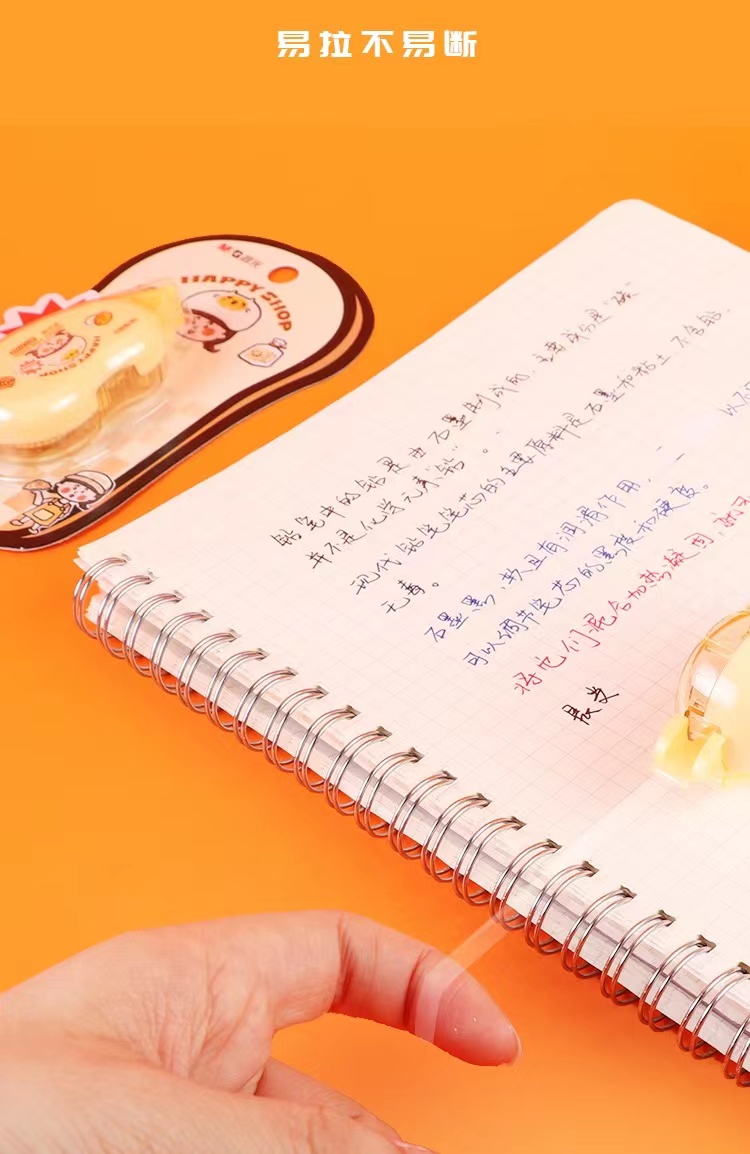 易拉不易断
M&G晨光
HAPPY SHOP
HAPPY SHOP
铅笔中的铅是由石墨制成的，主要成分是“碳”
并不是化学元素“铅”。
现代铅笔笔芯的主要原料是石墨和粘土，不含铅，
无毒。
石墨黑，软且有润滑作用，
可以调节笔芯的黑度和硬度。
将它们混合加热凝固，